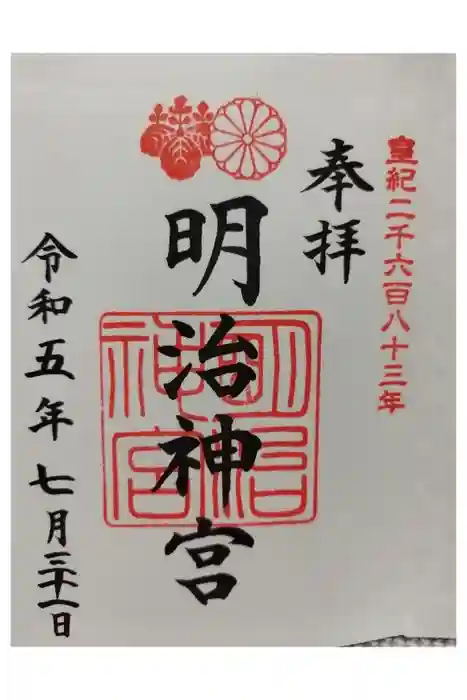 皇紀二千六百八十三年
奉拝
明治神宮
明治神宮
令和五年七月三十一日